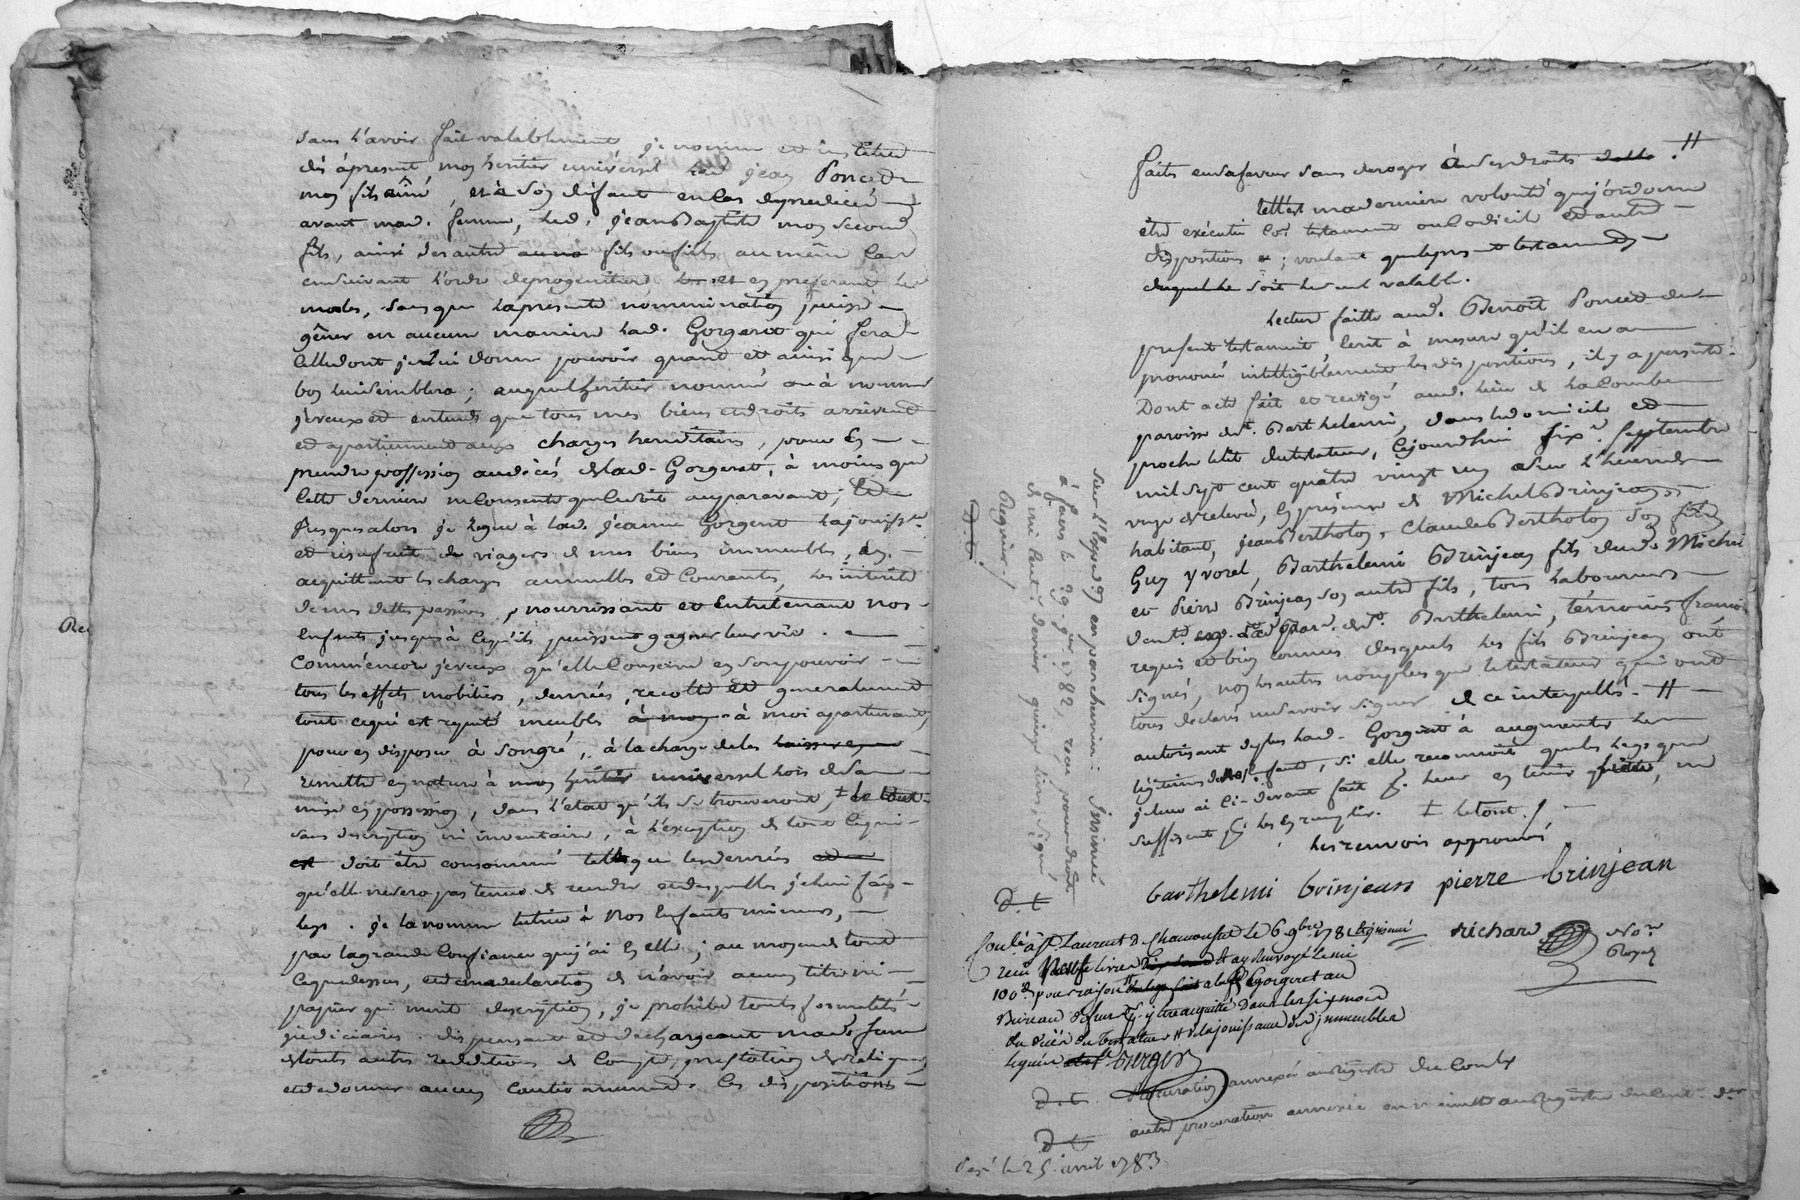 sans l'avoir fait valablement, je nomme et institue
dès àpresent mon heritier universel led. jean Poncet
mon fils aîné, et à son défaut en cas de predécé
avant mad. femme, led. jean Baptiste mon second
fils, ainsi des autre fils ou filles au même cas
en suivant l'ordre de progeniture, et en preferant les
males, sans que la presente nommination puisse
gêner en aucune maniere lad. Gorgeret qui fera
celle dont je lui donne pouvoir quand et ainsi que
bon lui semblera; auquel heritier nommé ou à nommer
je veux et entends que tous mes biens et droits arrivent
et apartiennent aux charges hereditaires, pour en
prendre possession au décès de lad. Gorgeret, à moins que
cette derniere ne consente qu'il eut auparavant;
jusques alors je legue à lad. jeanne Gorgeret la jouiss.ce
et usufruit de viagere de mes biens immeubles, en
acquittant les charges annuelles et courantes, les interêts
de mes dettes passives, nourrissant et entretenant nos
enfants jusqu'à ce qu'ils puissent gagner leur vie.
comm'encore je veux qu'elle conserve en son pouvoir
tous les effets mobiliers, denrées, recolte et generalement
tout ce qui est reputé meubles à moy à moi apartenant,
pour en disposer à son gré, à la charge de les laisser en
remettre en nature à mon heritier universel lors de sa
mise en possession, dans l'etat qu'ils se trouveront, ‡ le tout
sans description ni inventaire, à l'exception de tout ce qui
est doit être consommé telle que les denrées
qu'elle ne sera pas tenue de rendre et desquelles je lui fais
legs. je la nomme tutrice à nos enfants mineurs,
par la grande confiance que j'ai en elle; au moyen de tout
ce que dessus, et de ma declaration de n'avoir aucun titre ni
papier qui merite description, je prohibe toute formalité
judiciaire. dispensant et dechargeant mad. femme
de toute autre reddition de compte, prestation de reliqua
et de donner aucun cautionnement. les dispositions
faites en sa faveur sans deroger à ses droits dotte. H
telle est ma derniere volonté que j'ordonne
être exécutée par testament ou codicile et autre
disposition; voulant que le present testament
duquel soit le seul valable.
Lecture faitte aud. Benoît Poncet du
present testament, ecrit à mesure qu'il en a
prononcé intelligiblement les dispositions, il y a persisté.
Dont acte fait et redigé aud. lieu de la Combe
paroisse de St. Barthelemi, dans le domicile et
proche le lit du testateur, cejourd'hui six.e septembre
mil sept cent quatre vingt un sur l'heure de
vespres relevée, en présence de Michel Brinjean
habitant, jean Bertholon, Claude Bertholon son fils,
Guy yvorel, Barthelemi Brinjean fils dud. Michel
et Pierre Brinjean son autre fils, tous laboureurs
de St. Barthelemi, témoins françois
requis et bien connus desquels les fils Brinjean ont
signé, non les autres non plus que le testateur qui ont
tous declaré ne savoir signer de ce interpellés. H
autorisant de plus lad. Gorgeret à augmenter les
légitimes de nos enfants, si elle reconnoit que les legs que
je leur ai ci-devant fait pour leur en tenir place, ne
suffisent pas les remplir. ‡ le tout.
Les renvois approuvés
barthelemi brinjean pierre brinjean
Richard No.re Royal
Sur l'expéd.on en parchemin. Insinué
à feurs le 29 9.bre 1782, reçu pour droit
de mi cent. denier quinze livres, signé
Regnier.
D. t.
D. t
Conlé à St Laurent de Chamousset le 6 9bre 1781 & insinué
reçu livres H ay Renvoyé le mi
100e pour raison a la Gorgeret au
Bureau de feurs y être acquitté dans les six mois
du décès du testateur H de la jouissance des immeubles
legués burger
D. t. Procuration annexée au registre du Contr.
D. t autre procuration annexée en minutte au Registre du cent. d.er
Dex. le 25 avril 1783